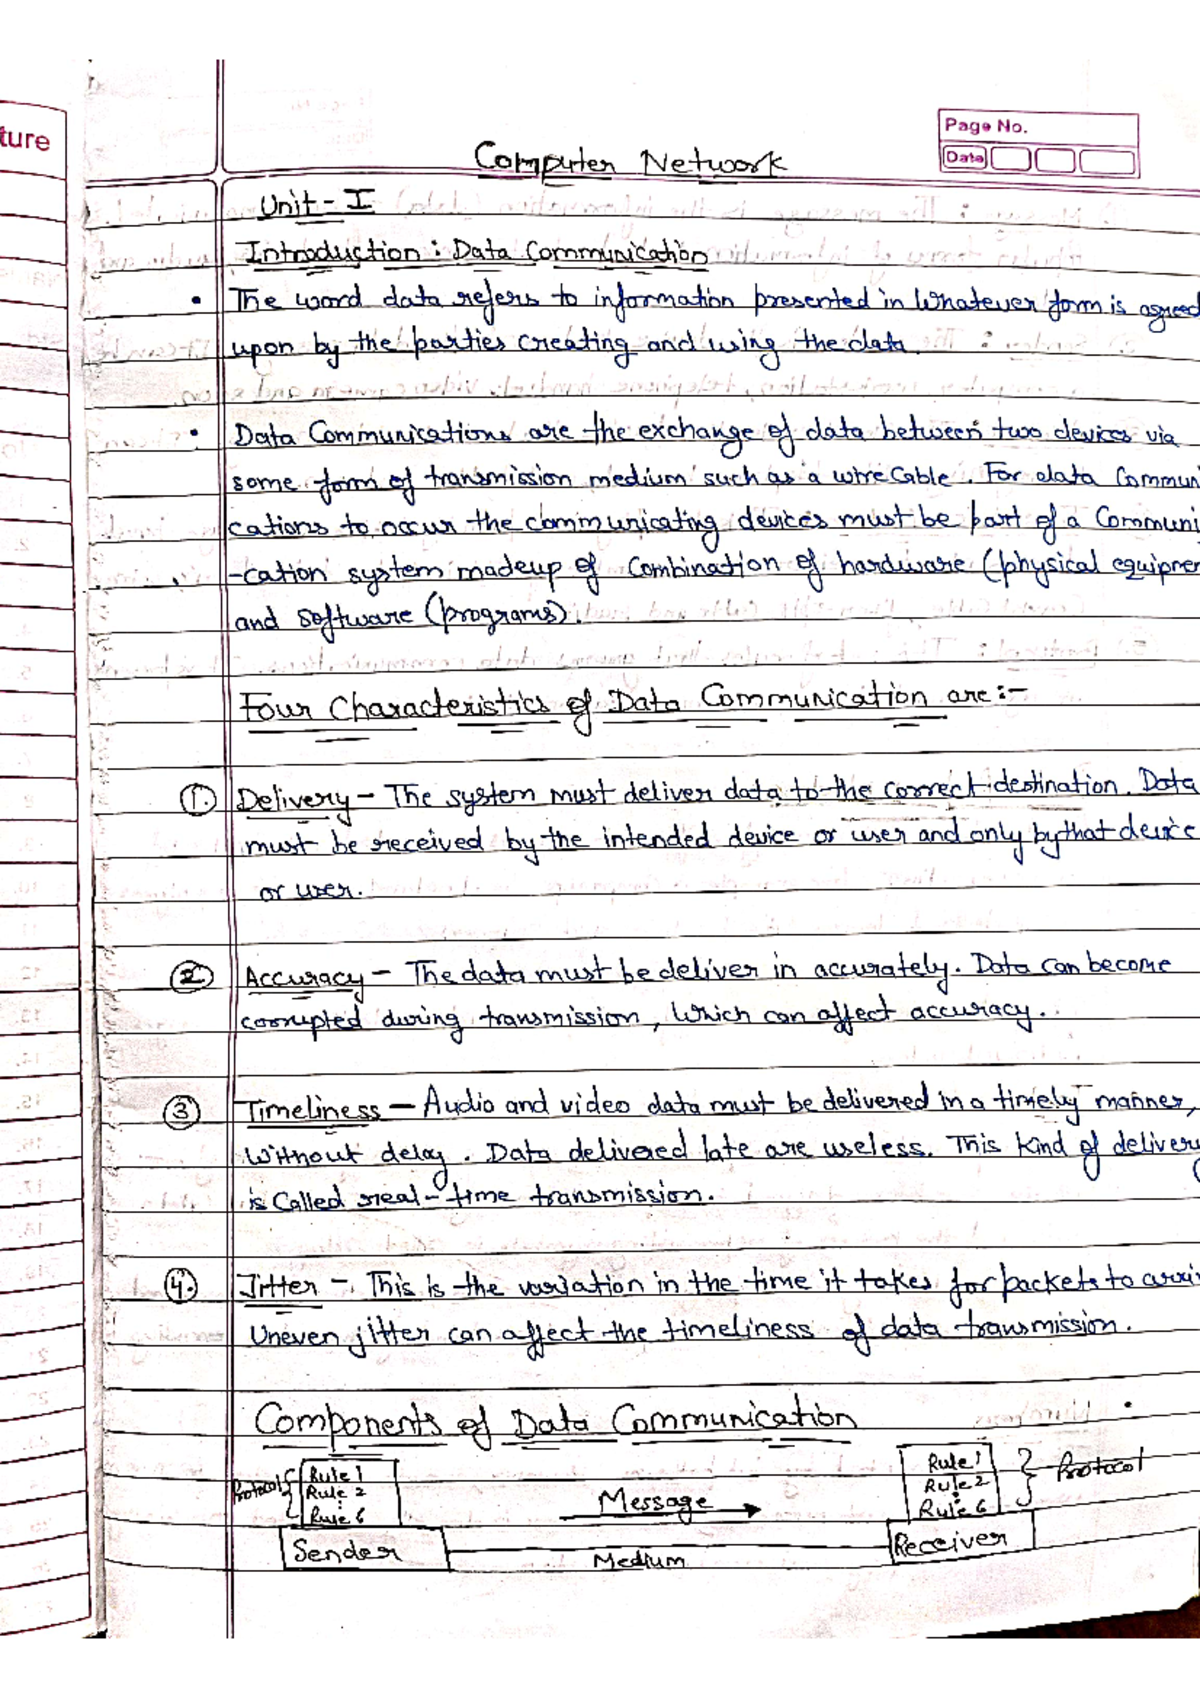 ture
Page No.
Date
Computer Network
Unit - I
Introduction : Data Communication
• The word data refers to information presented in Whatever form is agreed
upon by the parties creating and using the data.
• Data Communications are the exchange of data between two devices via
some form of transmission medium such as a wire Cable. For data Commun
cations to occur the communicating devices must be part of a Communi
-cation system madeup of Combination of hardware (physical equipmen
and software (programs).
Four Characteristics of Data Communication are :-
1. Delivery - The system must deliver data to the correct destination. Data
must be received by the intended device or user and only by that device
or user.
2. Accuracy - The data must be deliver in accurately. Data can become
corrupted during transmission, Which can affect accuracy.
3 Timeliness - Audio and video data must be delivered in a timely manner,
Without delay. Data delivered late are useless. This kind of delivery
is Called real-time transmission.
4. Jitter - This is the variation in the time it takes for packets to arri
Uneven jitter can affect the timeliness of data transmission.
Components of Data Communication
Protocol { Rule 1
Rule 2
Rule 6
Message
Rule 1 } Protocol
Rule 2
Rule 6
Sender
Medium
Receiver